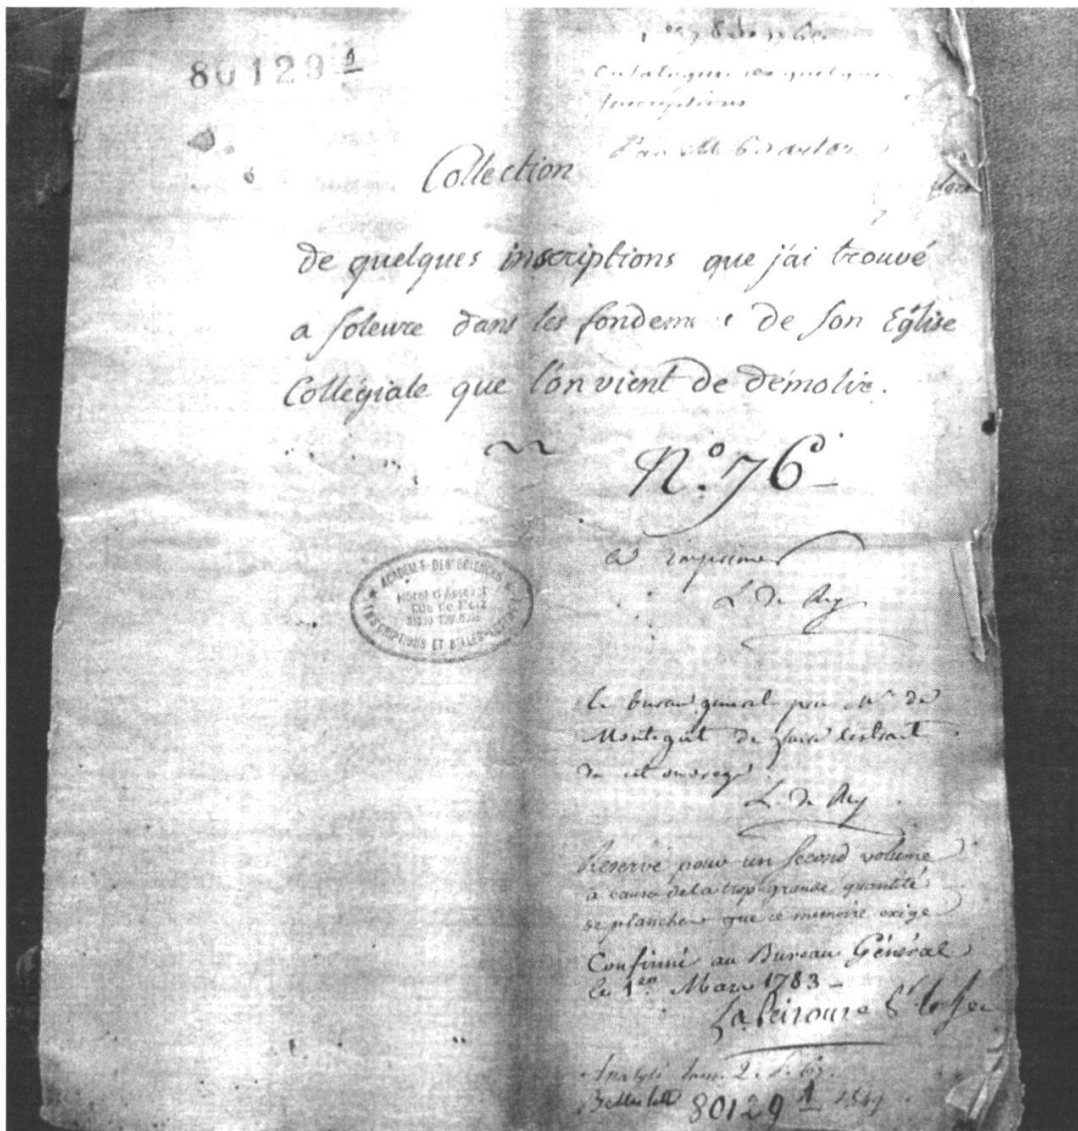 80129 1
Catalogue de quelques
Inscriptions
Par M
Collection
de quelques inscriptions que j'ai trouvé
a soleure dans les fondem de son Eglise
Collégiale que l'on vient de démolir.
N.º 76
a imprimer
L. de Rey
ACADÉMIE DES SCIENCES
Hôtel d'Assézat
Rue de Metz
INSCRIPTIONS ET BELLES-LETTRES
le bureau general prie Mr. de
Montegut de faire l'extrait
de cet ouvrage
L. de Rey
Reservé pour un second volume
a cause de la trop grande quantité
de planches que ce memoire exige
Confirmé au Bureau Général
le 1er Mars 1783
La Peirouse
Analysé tom. 2. p.
80129 1